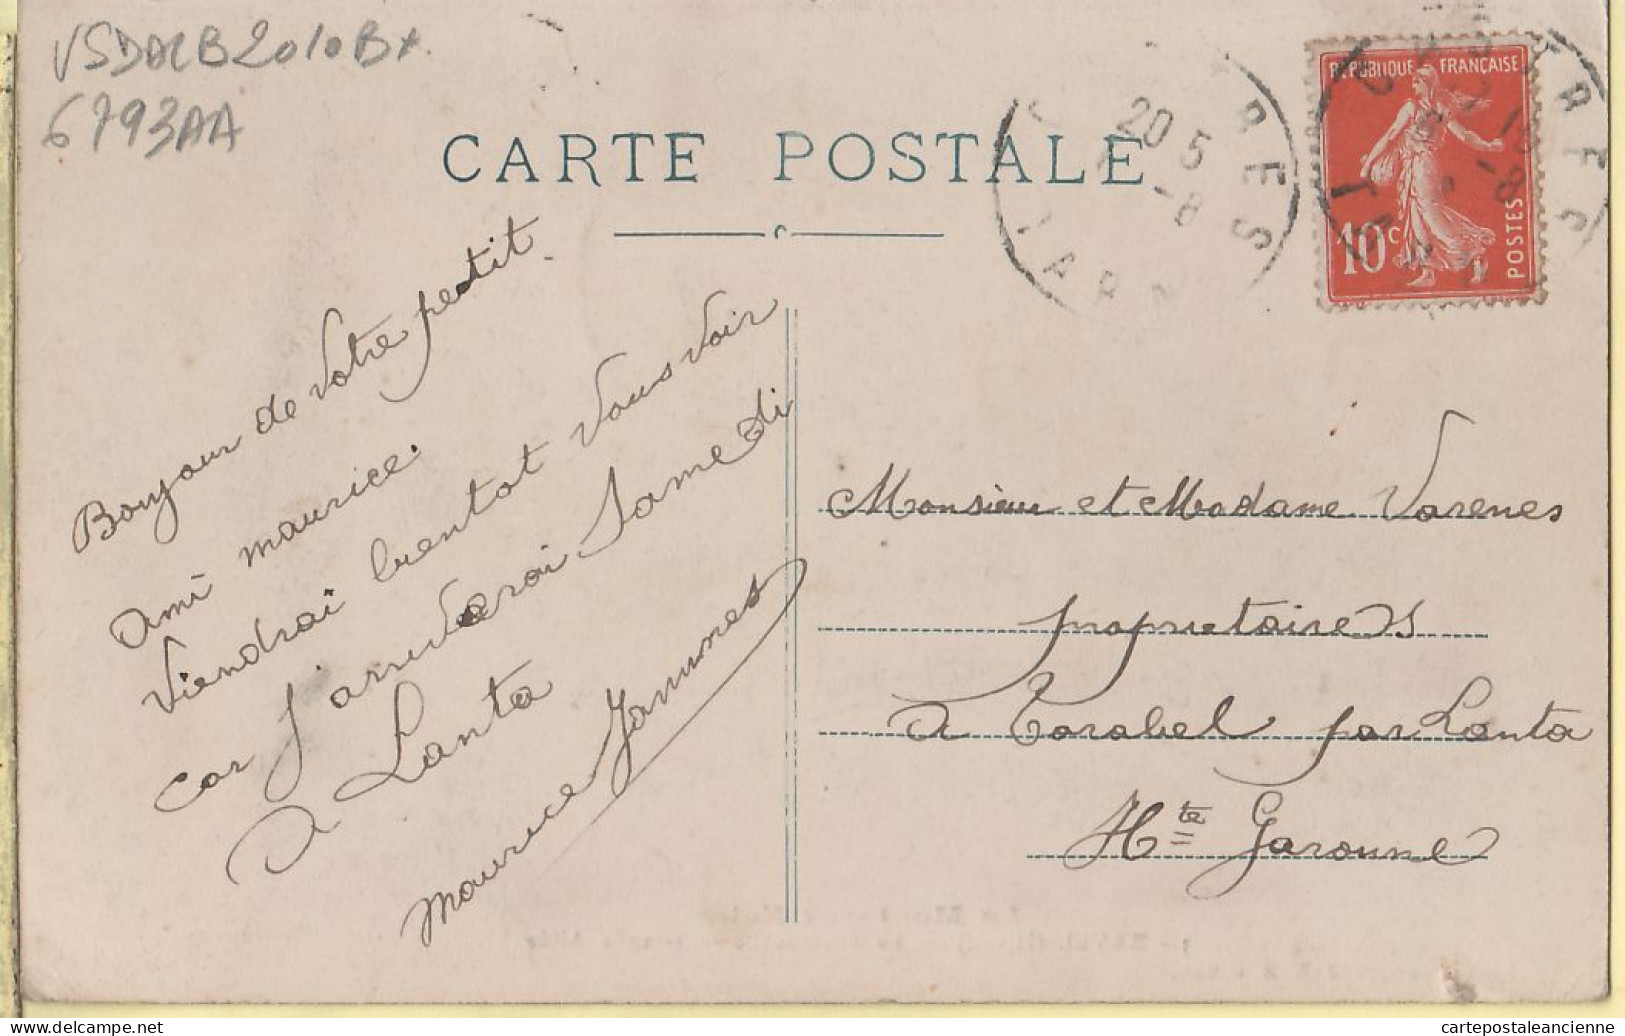 VSDALB2010B*
6793AA
CARTE POSTALE
REPUBLIQUE FRANÇAISE
10c
POSTES
20 5
-8
TARN
Bonjour de votre petit
ami maurice.
Viendrai bientot vous voir
car J'arriverai Samedi
A Lanta
maurice
Monsieur et Madame Varenes
propriétaires
A Tarabel par Lanta
Hte Garonne
cartepostaleancienne